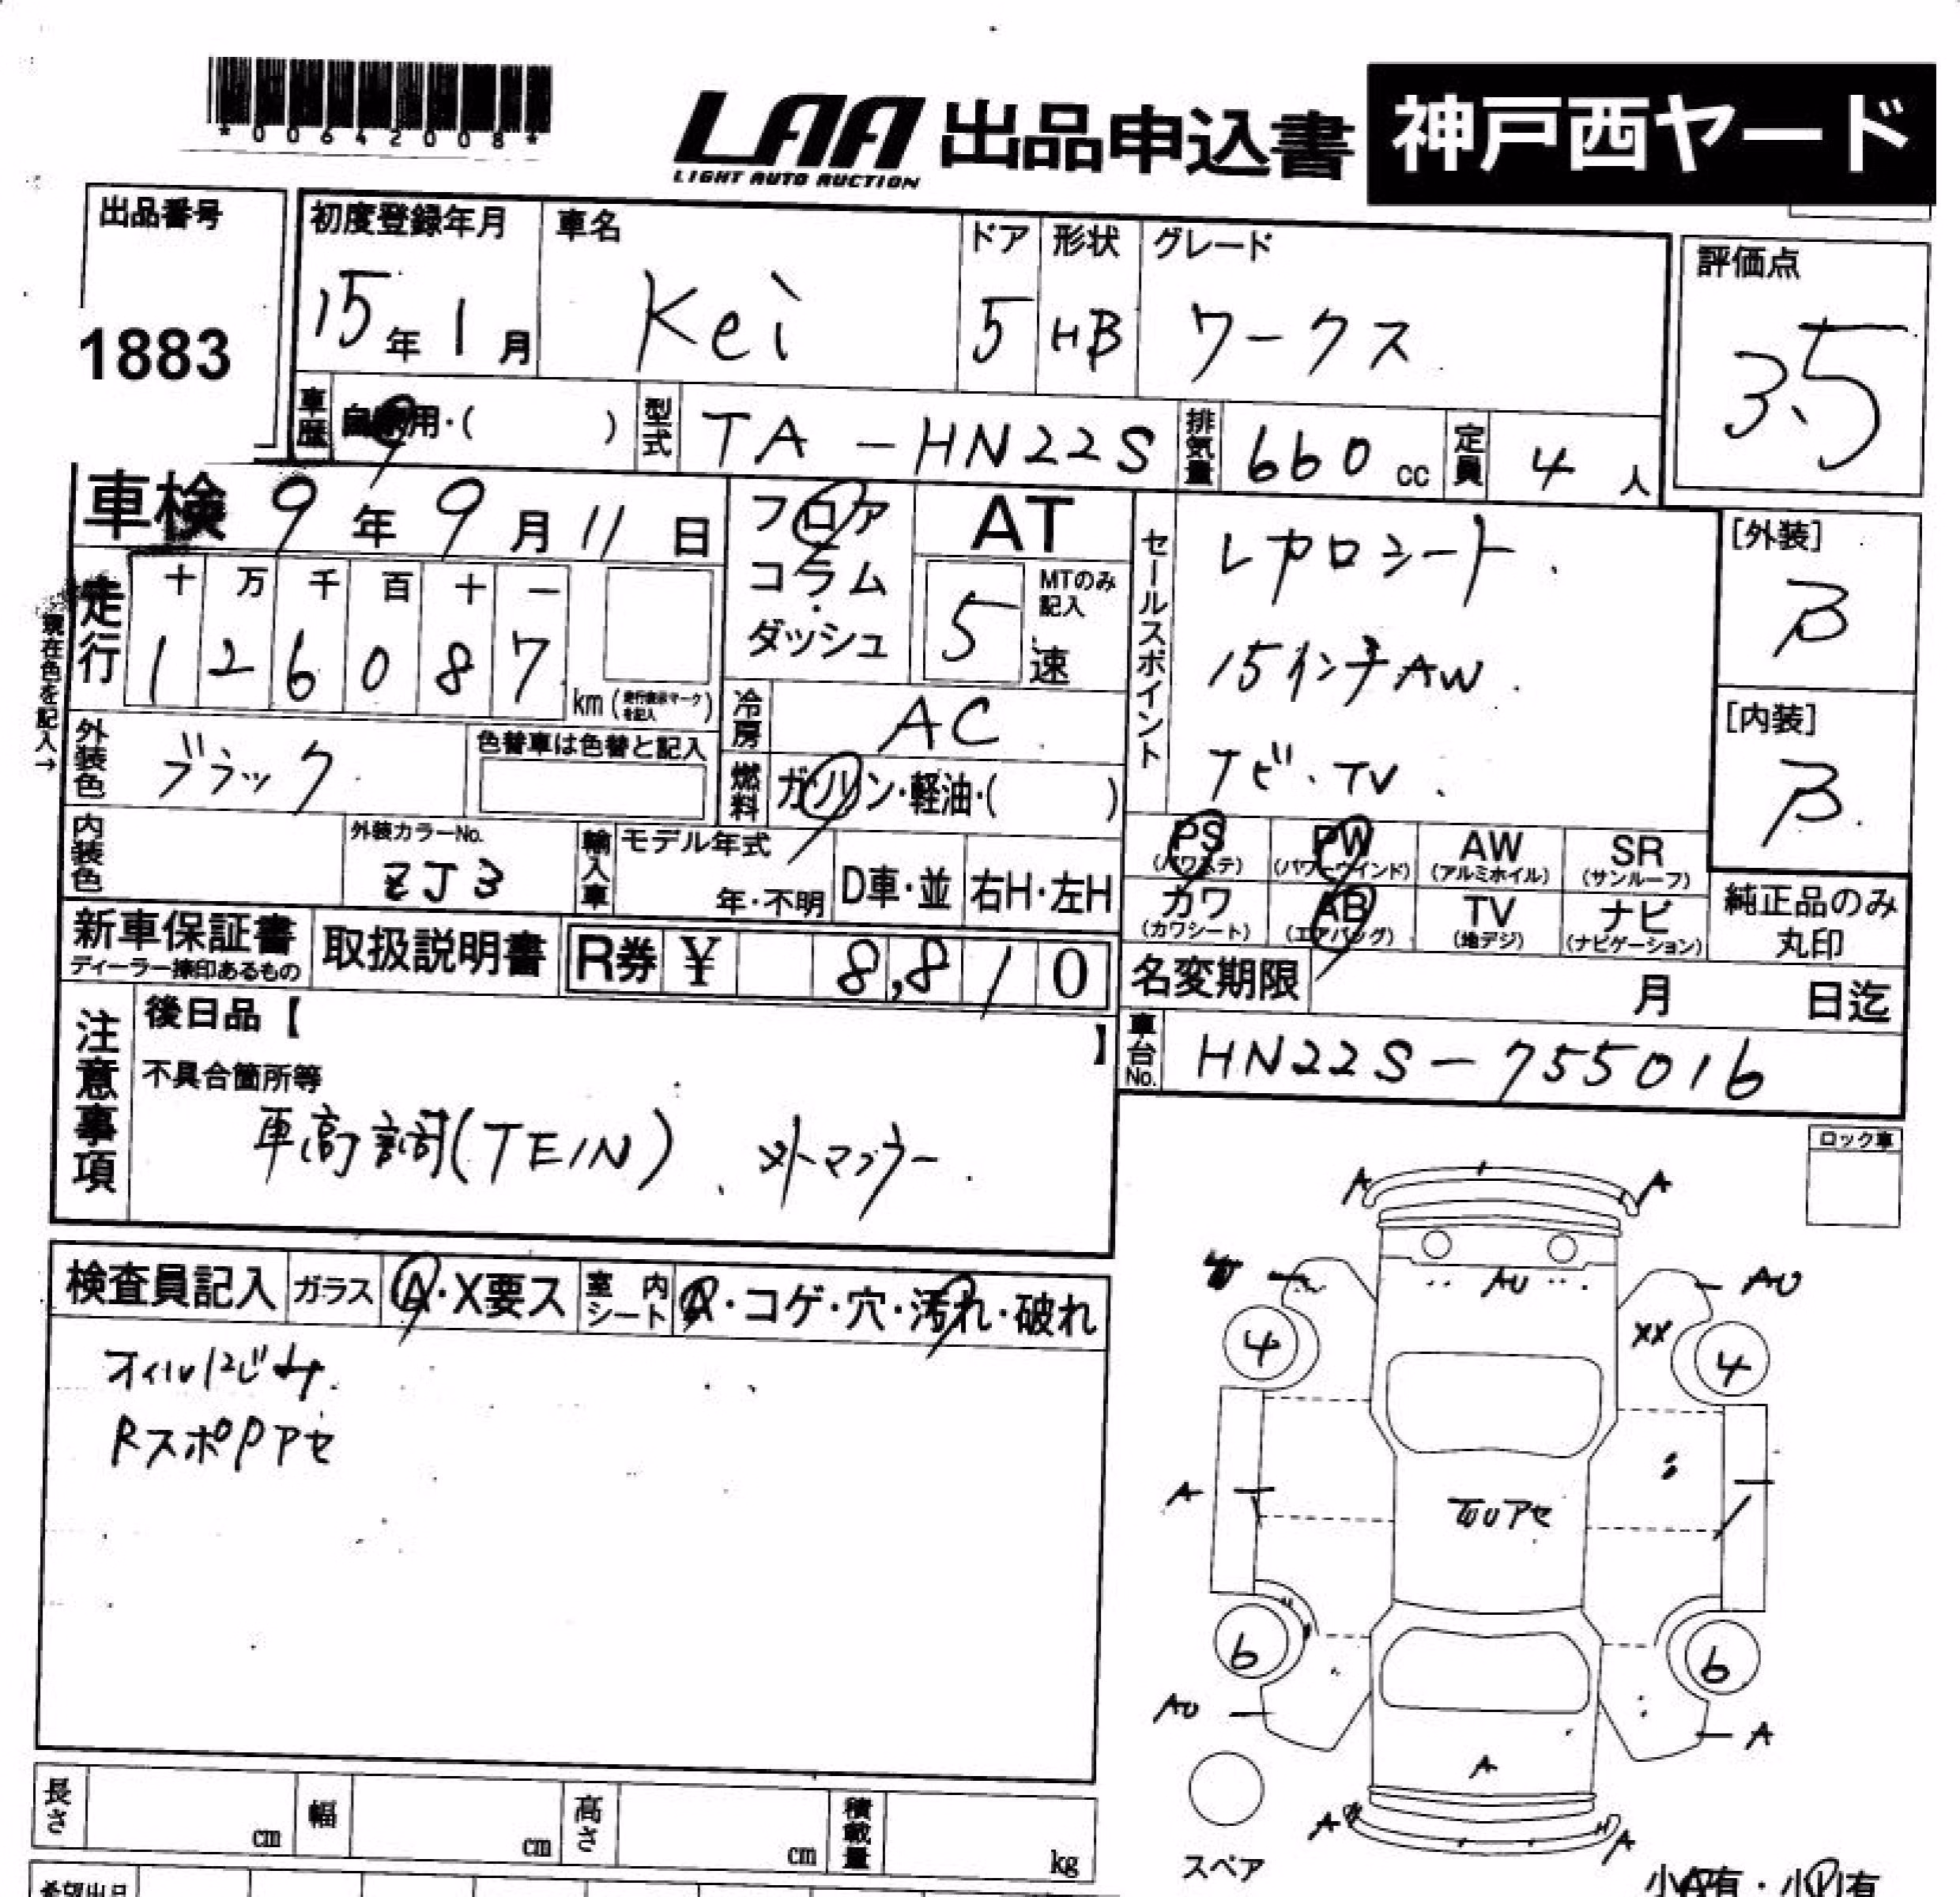 *00642008*
LAA 出品申込書 神戸西ヤード
LIGHT AUTO AUCTION
出品番号
1883
初度登録年月
15年1月
車名
Kei
ドア
5
形状
HB
グレード
ワークス
評価点
3.5
車歴
自家用・( )
型式
TA-HN22S
排気量
660cc
定員
4人
車検 9年9月11日
走行
十 万 千 百 十 一
1 2 6 0 8 7
km (走行表示マークを記入)
現在色を記入→
フロア
コラム
・
ダッシュ
AT
5
MTのみ記入
速
冷房
AC
燃料
ガソリン・軽油・( )
セールスポイント
レカロシート.
15インチAW.
ナビ・TV.
[外装]
B
[内装]
B.
外装色
ブラック
色替車は色替と記入
内装色
外装カラーNo.
ZJ3
輸入車
モデル年式
年・不明
D車・並
右H・左H
PS
(パワステ)
PW
(パワーウインド)
AW
(アルミホイル)
SR
(サンルーフ)
カワ
(カワシート)
AB
(エアバッグ)
TV
(地デジ)
ナビ
(ナビゲーション)
純正品のみ
丸印
新車保証書
ディーラー捺印あるもの
取扱説明書
R券 ¥ 8,810
名変期限
月 日迄
車台No.
HN22S-755016
注意事項
後日品【 】
不具合箇所等
車高調(TEIN)、外マフラー.
ロック車
検査員記入
ガラス
A・X要ス
室内シート
A・コゲ・穴・汚れ・破れ
オイルにじみ.
RスポPアセ
A A
AU AU
XX
4 4
A
アセ
6 6
AU A
A
A A
スペア
小A有・小U有
長さ cm
幅 cm
高さ cm
積載量 kg
希望出日